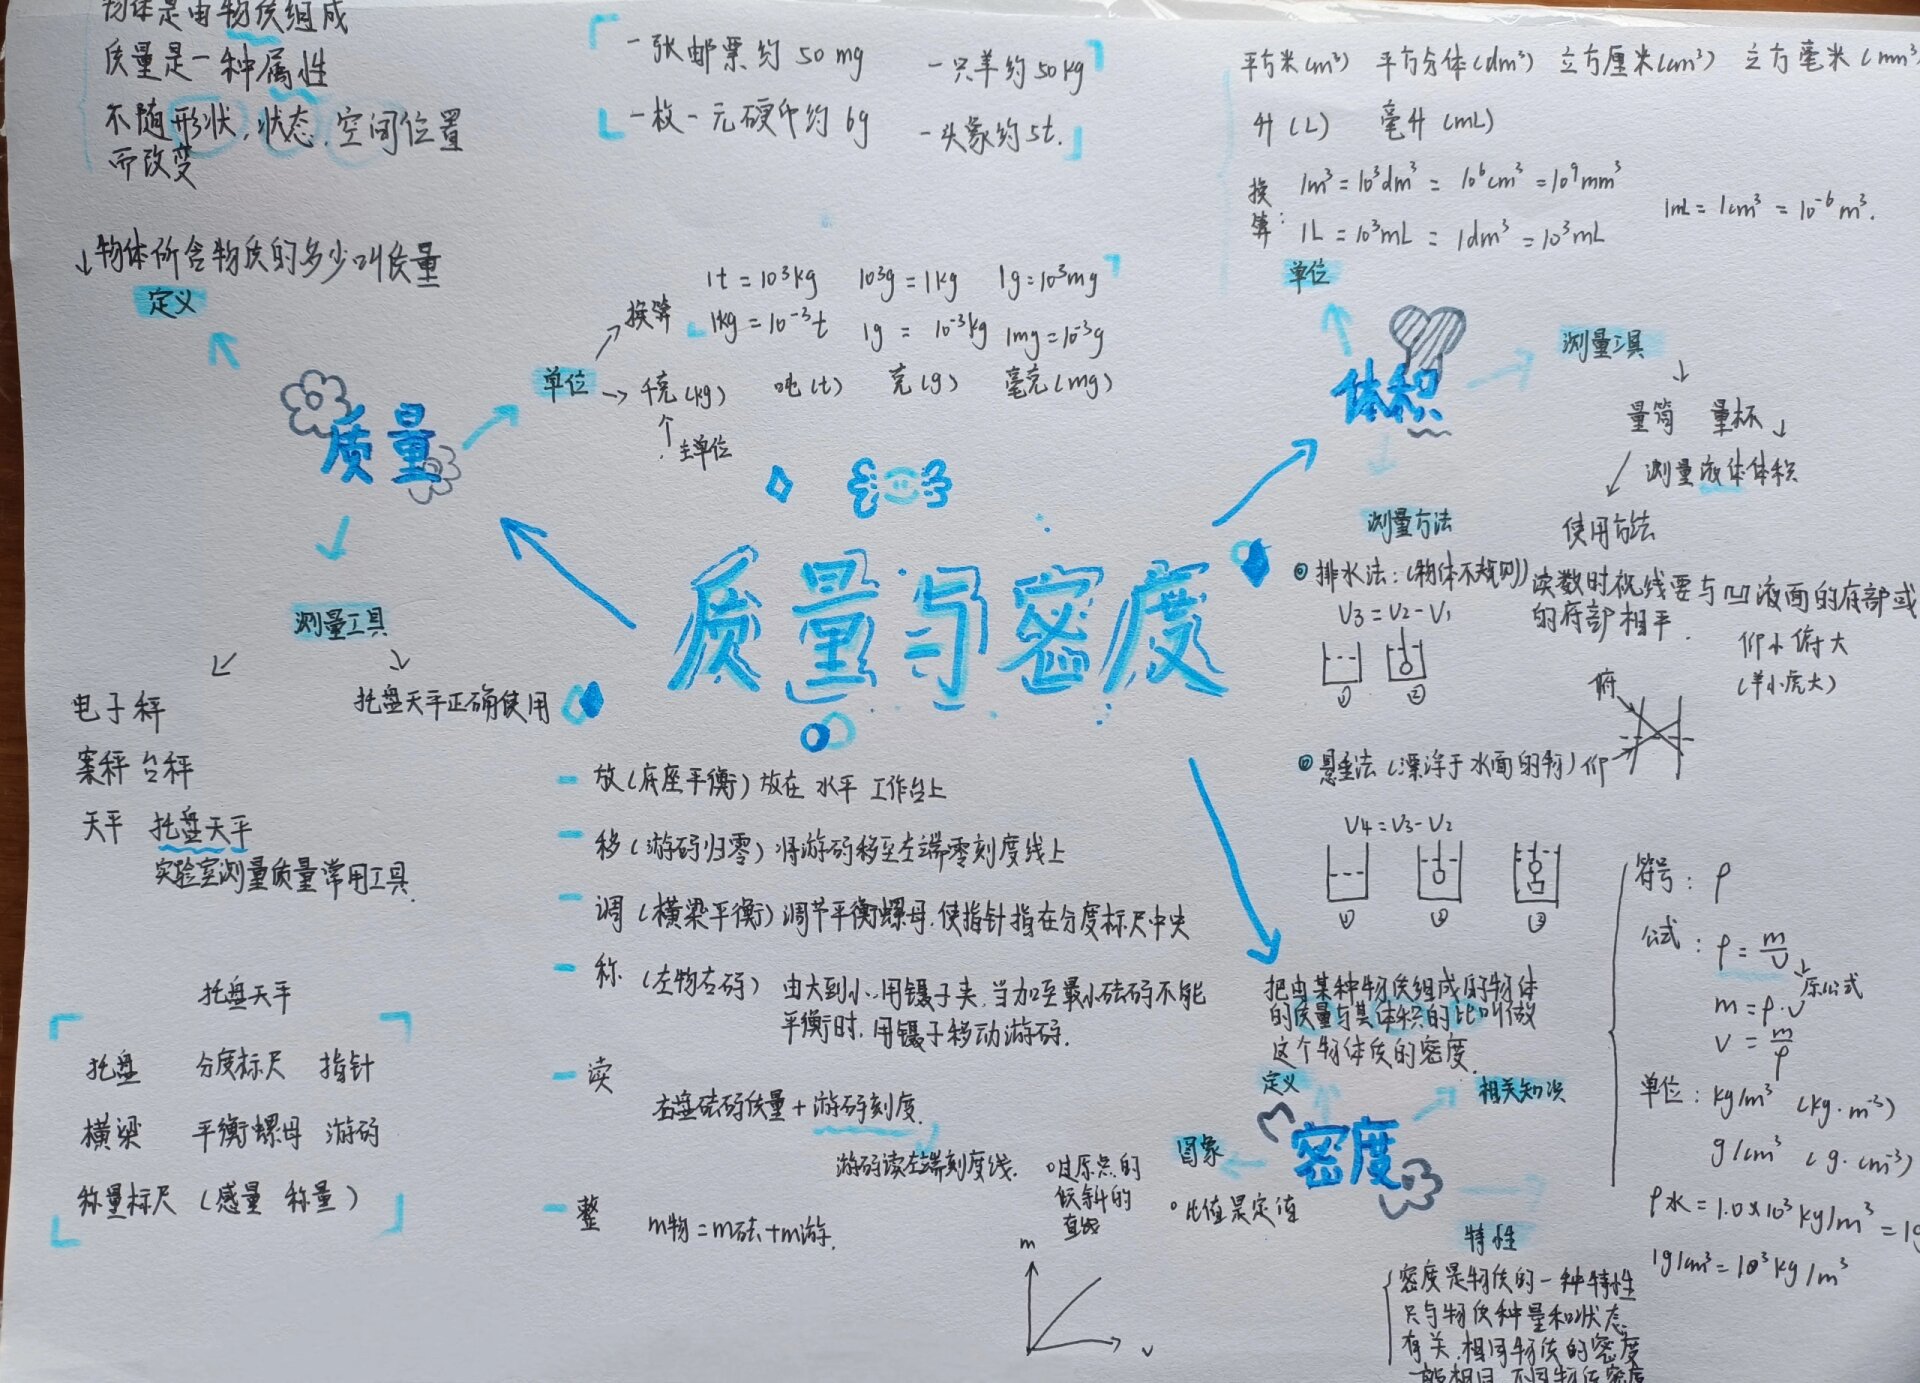 物体是由物质组成
质量是一种属性
不随形状,状态,空间位置
而改变
物体所含物质的多少叫质量
定义
质量
一张邮票约 50 mg
一只羊约 50 kg
一枚一元硬币约 6g
一头象约 5t.
换算
1t = 10³kg 10³g = 1kg 1g = 10³mg
1kg = 10⁻³t 1g = 10⁻³kg 1mg = 10⁻³g
单位
千克(kg) 吨(t) 克(g) 毫克(mg)
主单位
测量工具
电子秤
案秤 台秤
天平 托盘天平
实验室测量质量常用工具.
托盘天平正确使用
托盘天平
托盘 分度标尺 指针
横梁 平衡螺母 游码
称量标尺 (感量 称量)
质量与密度
放(底座平衡)放在 水平 工作台上
移(游码归零)将游码移至左端零刻度线上
调(横梁平衡)调节平衡螺母,使指针指在分度标尺中央
称 (左物右码) 由大到小,用镊子夹,当加至最小砝码不能
平衡时,用镊子移动游码.
读
右盘砝码质量 + 游码刻度.
游码读左端刻度线.
整 m物 = m砝 + m游.
平方米(m³) 平方分体(dm³) 立方厘米(cm³) 立方毫米(mm³
升(L) 毫升(mL)
换算:
1m³ = 10³dm³ = 10⁶cm³ = 10⁹mm³
1L = 10³mL = 1dm³ = 10³mL
1mL = 1cm³ = 10⁻⁶m³.
单位
体积
测量工具
量筒 量杯
测量液体体积
使用方法
读数时视线要与凹液面的底部或
的底部相平.
仰小俯大
(羊小虎大)
俯
仰
测量方法
排水法:(物体不规则)
V3 = V2 - V1
① ②
悬垂法(漂浮于水面的物)
V4 = V3 - V2
① ② ③
把由某种物质组成的物体
的质量与其体积的比叫做
这个物体质的密度.
定义
密度
相关知识
符号: ρ
公式: ρ = m/V
原公式
m = ρ·V
V = m/ρ
单位: kg/m³ (kg·m⁻³)
g/cm³ (g·cm⁻³)
ρ水 = 1.0×10³ kg/m³ = 1g
1g/cm³ = 10³ kg/m³
图象
过原点的
倾斜的
直线
比值是定值
m
V
特性
密度是物质的一种特性
只与物质种量和状态
有关.相同物质的密度
一般相同,不同物质密度